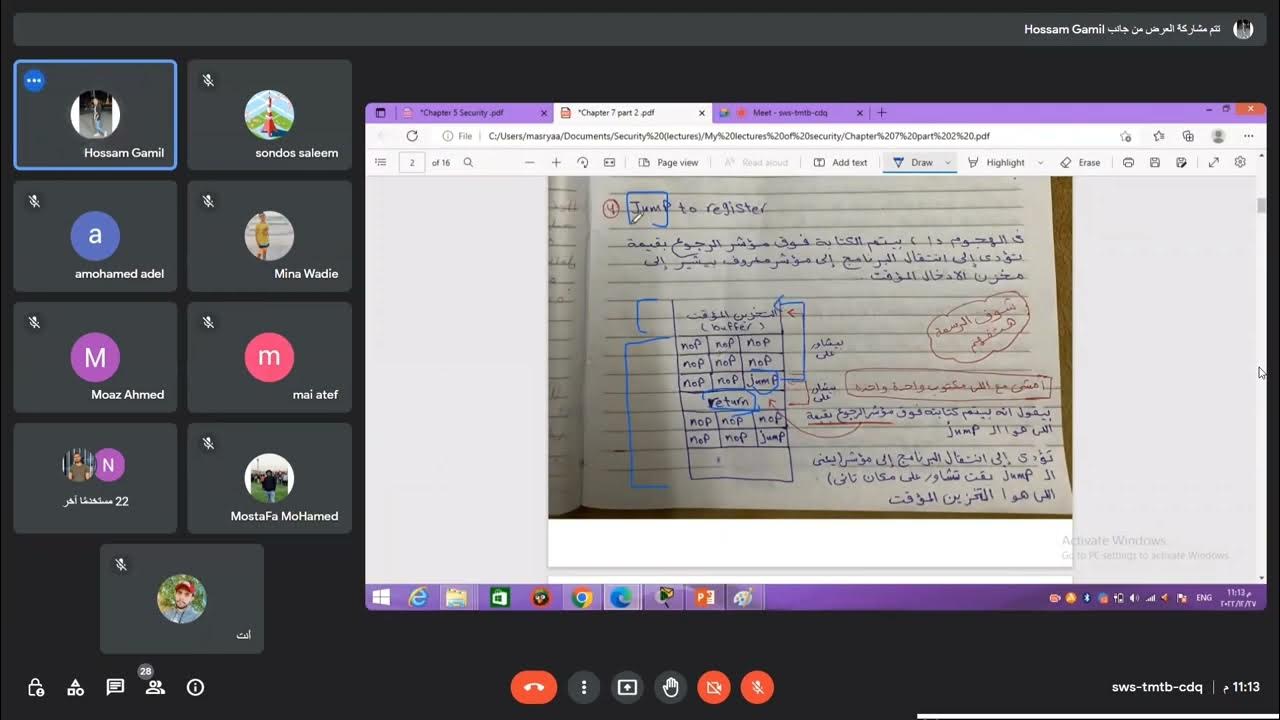 تتم مشاركة العرض من جانب Hossam Gamil
Hossam Gamil
sondos saleem
a
amohamed adel
Mina Wadie
M
Moaz Ahmed
m
mai atef
N
22 مستخدمًا آخر
MostaFa MoHamed
انت
*Chapter 5 Security .pdf
*Chapter 7 part 2 .pdf
Meet - sws-tmtb-cdq
File
C:/Users/masryaa/Documents/Security%20(lectures)/My%20lectures%20of%20security/Chapter%207%20part%202%20.pdf
2 of 16
Page view
Read aloud
Add text
Draw
Highlight
Erase
4 Jump to register
فى الهجوم دا ، بيتم الكتابة فوق مؤشر الرجوع بقيمة
تؤدى إلى انتقال البرنامج إلى مؤشر معروف بيشير إلى
مخزن الادخال المؤقت
التخزين المؤقت
(buffer)
nop nop nop
nop nop nop
nop nop jump
return
nop nop nop
nop nop jump
بيشاور
على
بيشاور
على
شوف الرسمة
هتفهم
امشى مع اللى مكتوب واحدة واحده
بيقول انه بيتم كتابته فوق مؤشر الرجوع بقيمة
اللى هو ال jump
تؤدى إلى انتقال البرنامج إلى مؤشر (يعنى
ال jump بقت تشاور على مكان تانى)
اللى هو التخزين المؤقت
Activate Windows
Go to PC settings to activate Windows.
ENG
11:13 م
٢٠٢٢/١٢/٢٧
28
sws-tmtb-cdq
11:13 م